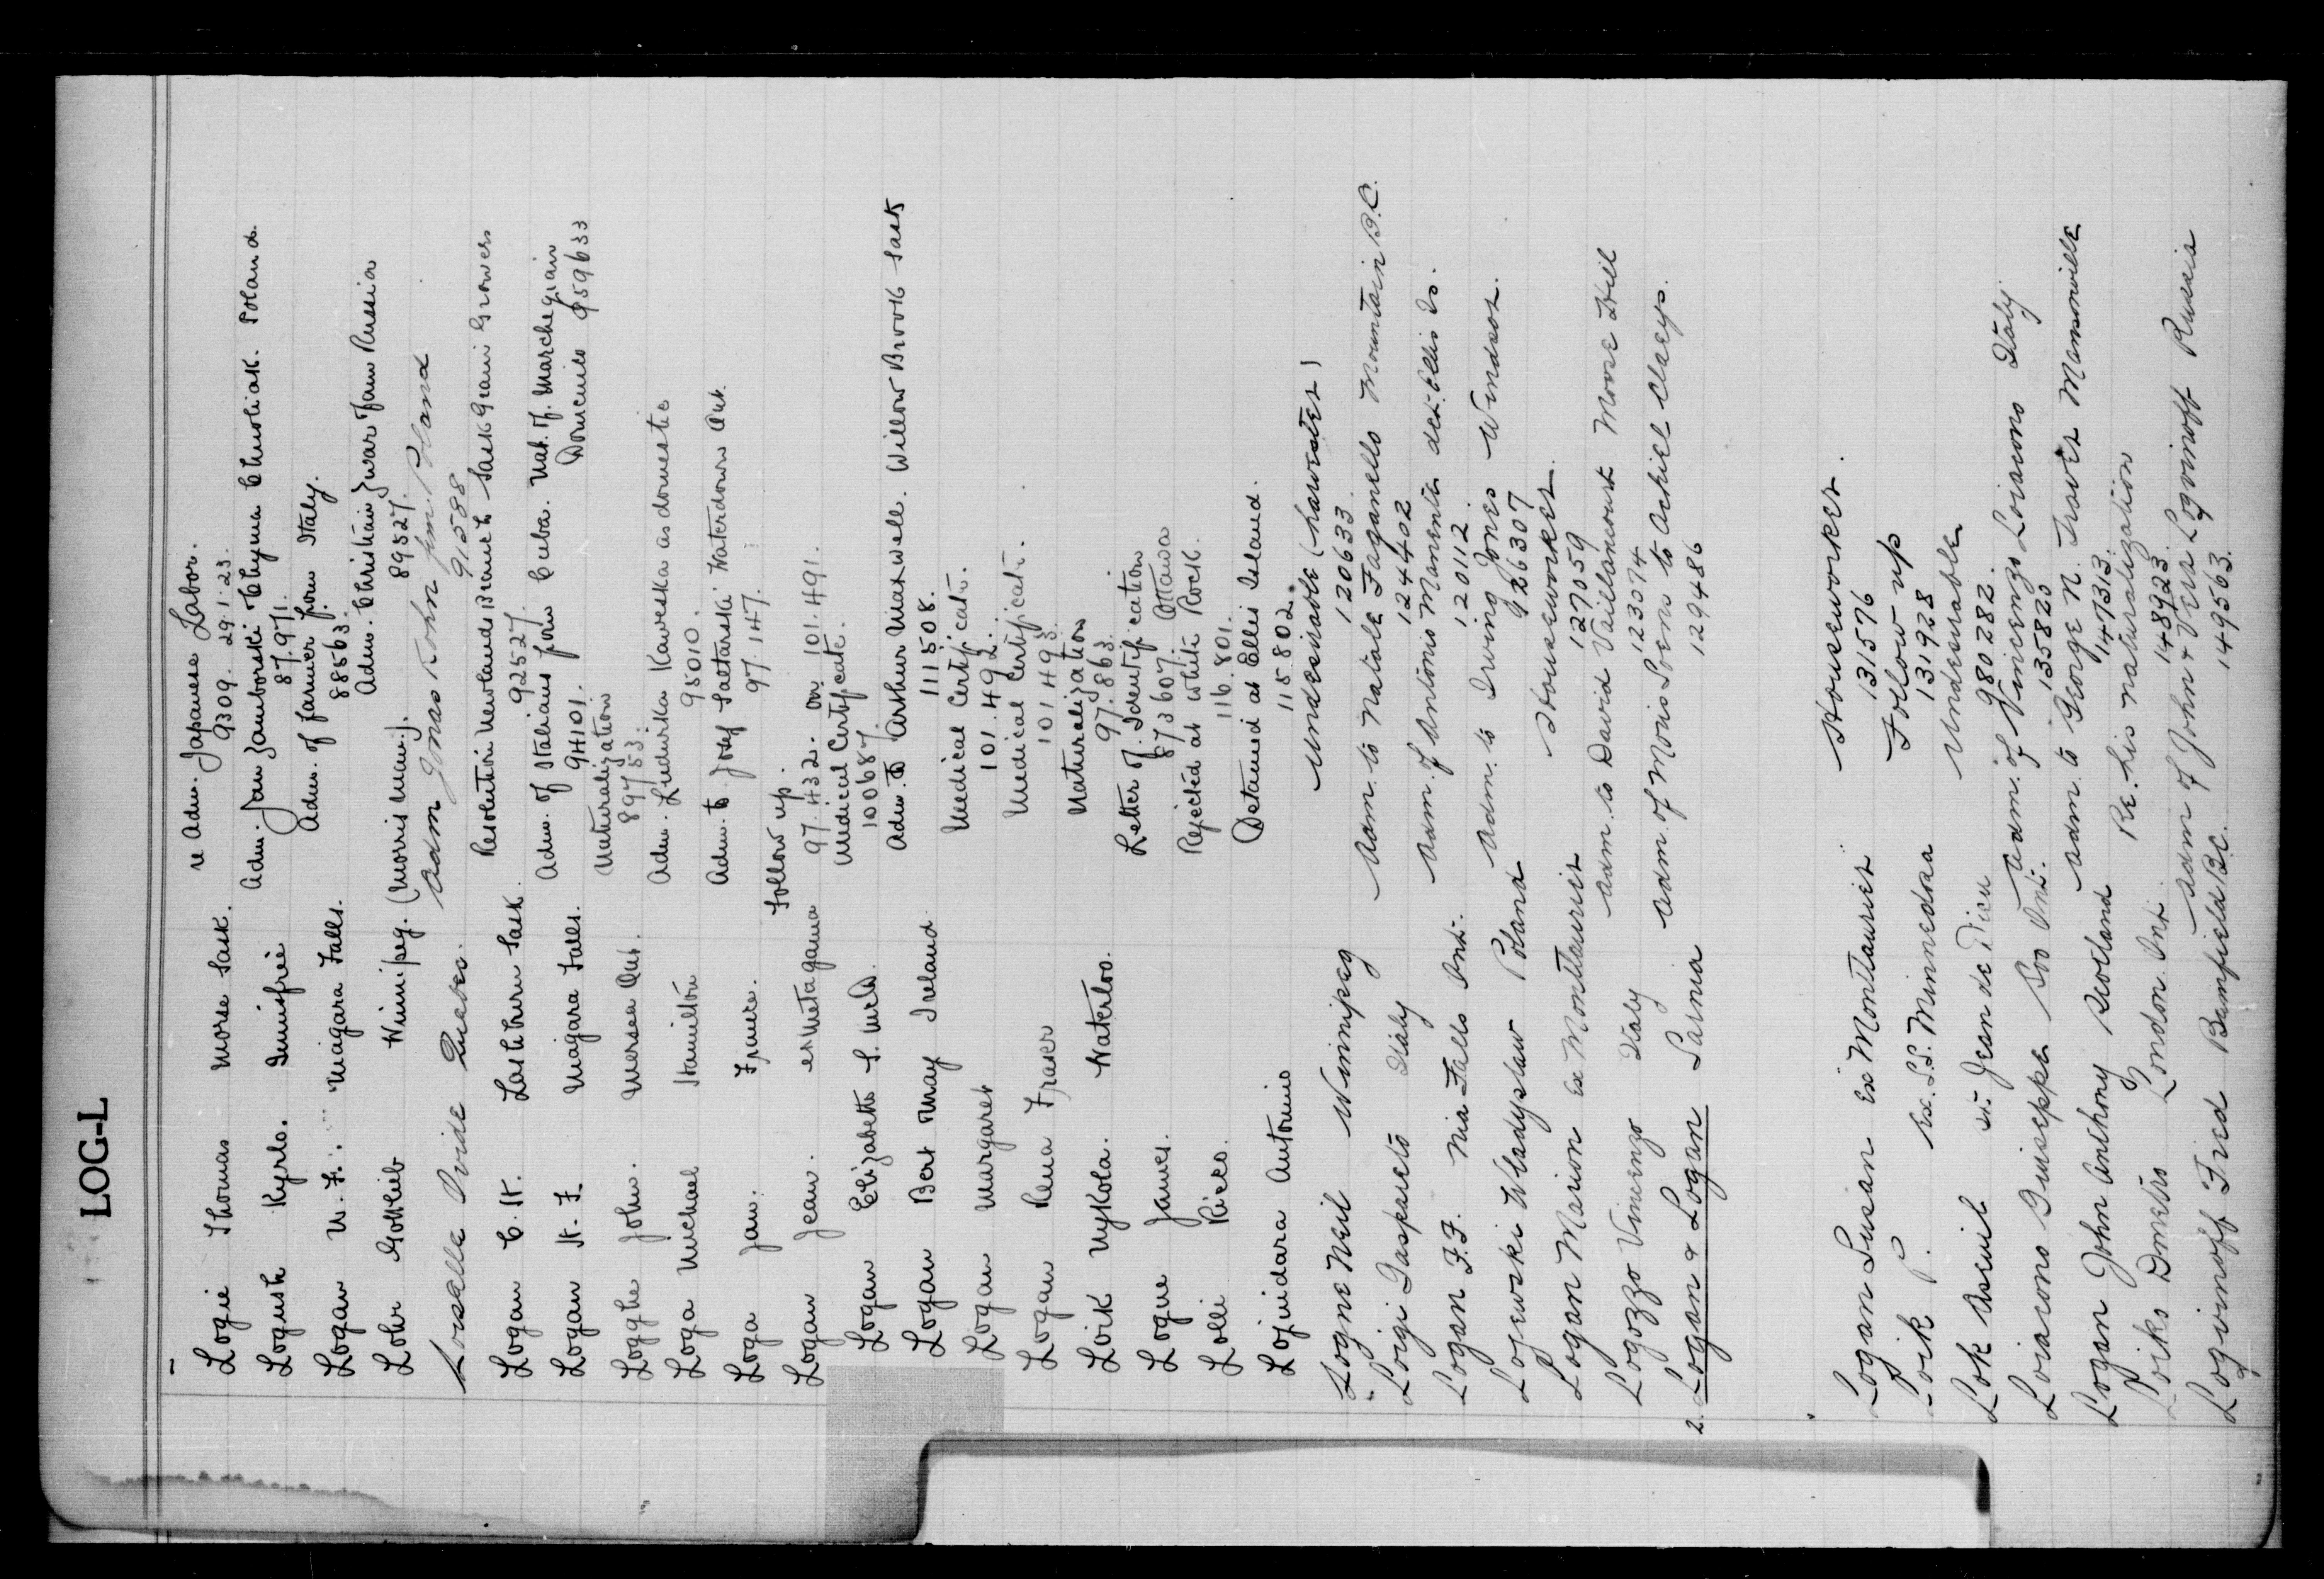 LOG-L
Logie Thomas Morse Sask. re Adm. Japanese Labor.
9309. 29.1.23.
Logush Kyrlo. Adm. Jan Zamborski Chyma Poland.
87.971.
Logan W. F. Niagara Falls. Adm. of farmer from Italy.
88563.
Lohr Gottlieb Winnipeg. (Morris Man.). Adm. Christian from Russia
89527.
Loiselle Ovide Quebec. Adm Jonas Kohn fm. Poland
91588
Logan C. H. Lashburn Sask. Resolution Newlands Branch Sask Grain Growers
92527.
Logan H. F. Niagara Falls. Adm. of Italians from Cuba. Nat. of. Marchegiain
94101. Domenico 959633
Logghe John. Mersea Ont. Naturalization
89753.
Loga Michael Hamilton Adm. Ludurika Kaweska as domestic
95010.
Loga Jan. Adm. to Josef Saltarski Waterdown Ont.
97.147.
Logan Jean. ex Metagama Follow up.
97.432. on 101.491.
Logan Elizabeth Medical Certificate.
100687.
Logan Bert May Ireland Adm. to Arthur Maxwell. Willow Brook Sask
111508.
Logan Margaret Medical Certificate.
101.492.
Logan Rena Fraser Medical Certificate.
101493.
Loik Mykola. Waterloo. Naturalization
97.863.
Logue James. Letter of. Identification
873607. Ottawa
Lolli Piero. Rejected at White Rock.
116.801.
Lojindara Antonio Detained at Ellis Island.
115.802.
Logne Neil Winnipeg Undesirable (harvester)
120633
Loigi Gaspareto Italy Adm. to Natale Faganello Mountain B.C.
124402
Logan F.F. Nia-Falls Ont. Adm. of Antonio Manenta det. Ellis Is.
120112.
Logewski Wladyslaw Poland Adm. to Irving Jones Windsor.
926307
Logan Marion ex Montlaurier Houseworker.
127059
Logozzo Vincenzo Italy Adm. to David Vaillancourt Moose Hill
123074
2. Logan & Logan Sarnia Adm. of Moris Soens to Achiel Claeys.
129486
Logan Susan ex Montlaurier Houseworker.
131576
Loik P. ex. S.S. Minnedosa Follow up
131928
Lok St. Jean de Dieu Undesirable
980282.
Loiacono Guiseppe Soo Ont. Adm. of Vincenzo Loiacono Italy
135820
Logan John Anthony Scotland Adm. to George N. Traver Mansonville
147313.
Loiko Dmetro London Ont. Re. his naturalization
148923.
Logvinoff Fred Bamfield B.C. Adm of John & Vera Logvinoff Russia
149563.